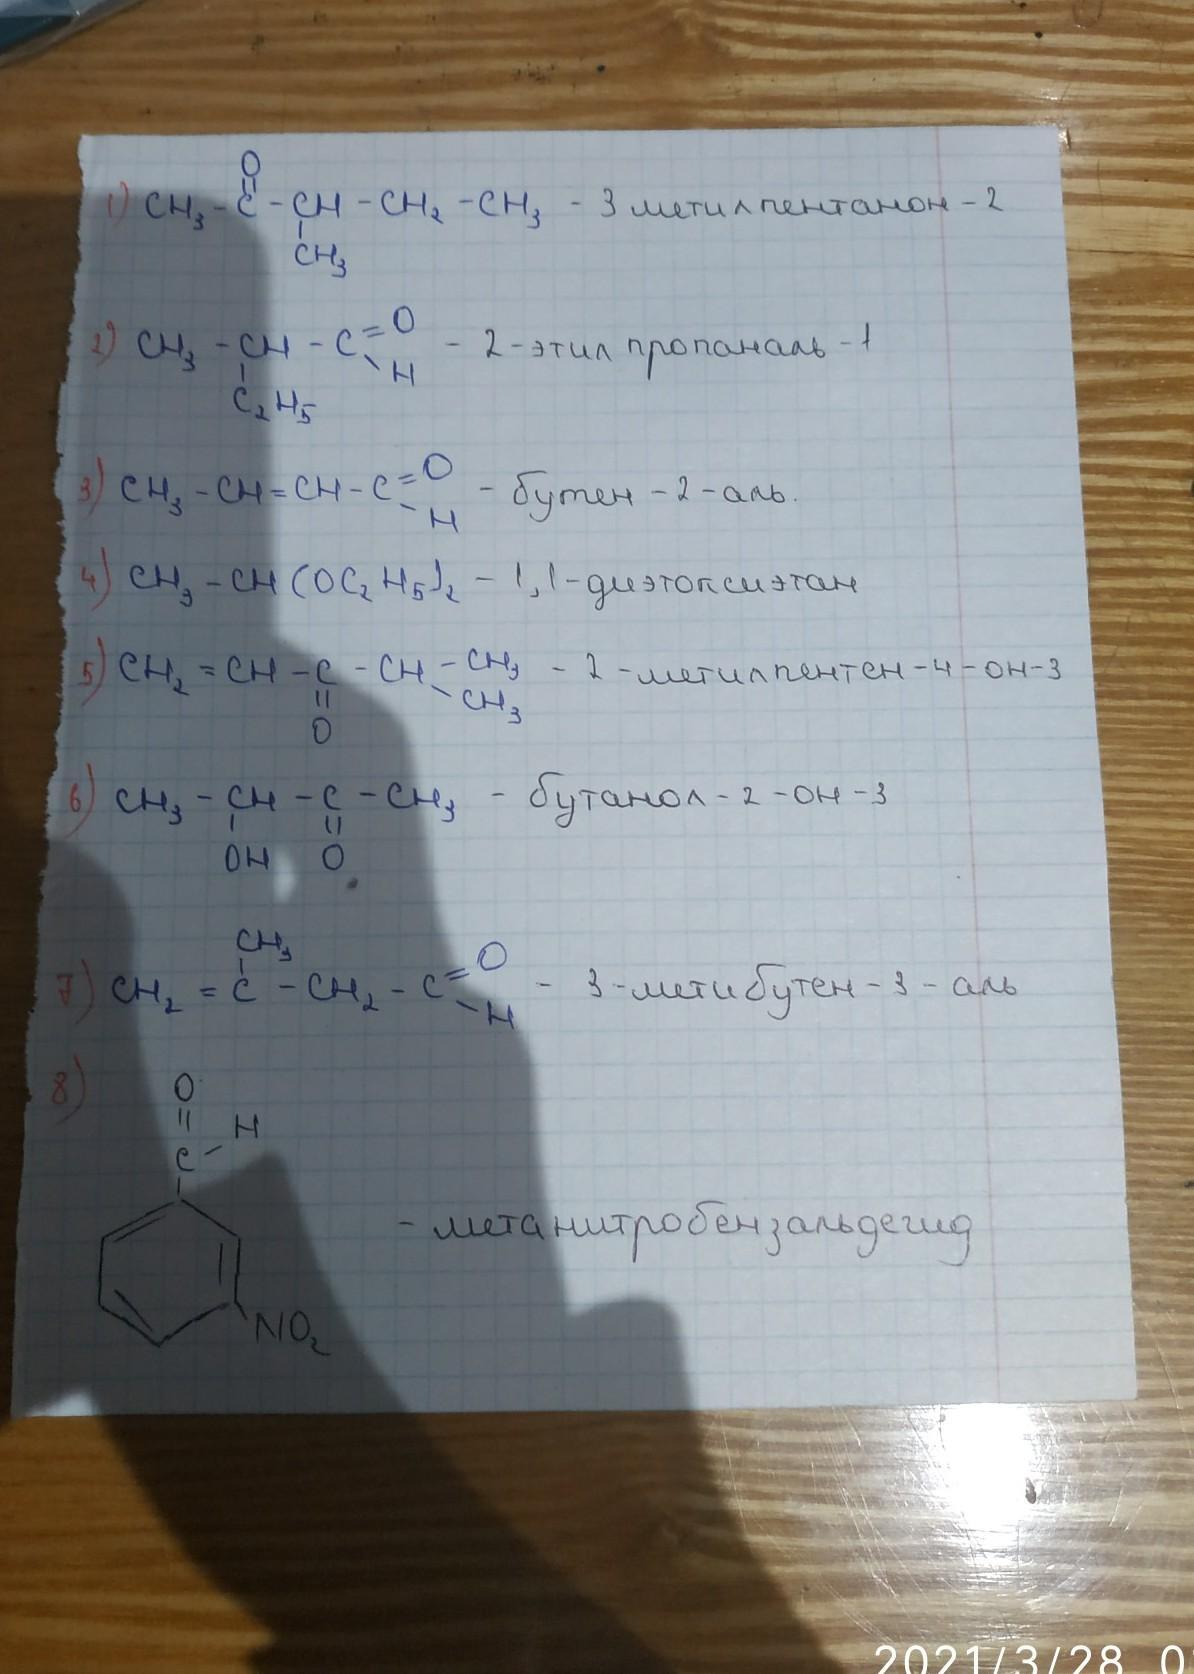 O
||
1) CH₃ - C - CH - CH₂ - CH₃ - 3 метилпентанон - 2
|
CH₃
O
2) CH₃ - CH - C = - 2 - этил пропаналь - 1
| H
C₂H₅
O
3) CH₃ - CH = CH - C = - бутен - 2 - аль.
H
4) CH₃ - CH (OC₂H₅)₂ - 1,1 - диэтоксиэтан
5) CH₂ = CH - C - CH - CH₃ - 2 - метилпентен - 4 - он - 3
|| CH₃
O
6) CH₃ - CH - C - CH₃ - бутанол - 2 - он - 3
| ||
OH O
CH₃
| O
7) CH₂ = C - CH₂ - C = - 3 - метибутен - 3 - аль
H
8)
O
|| H
C
- метанитробензальдегид
NO₂
2021/3/28 0